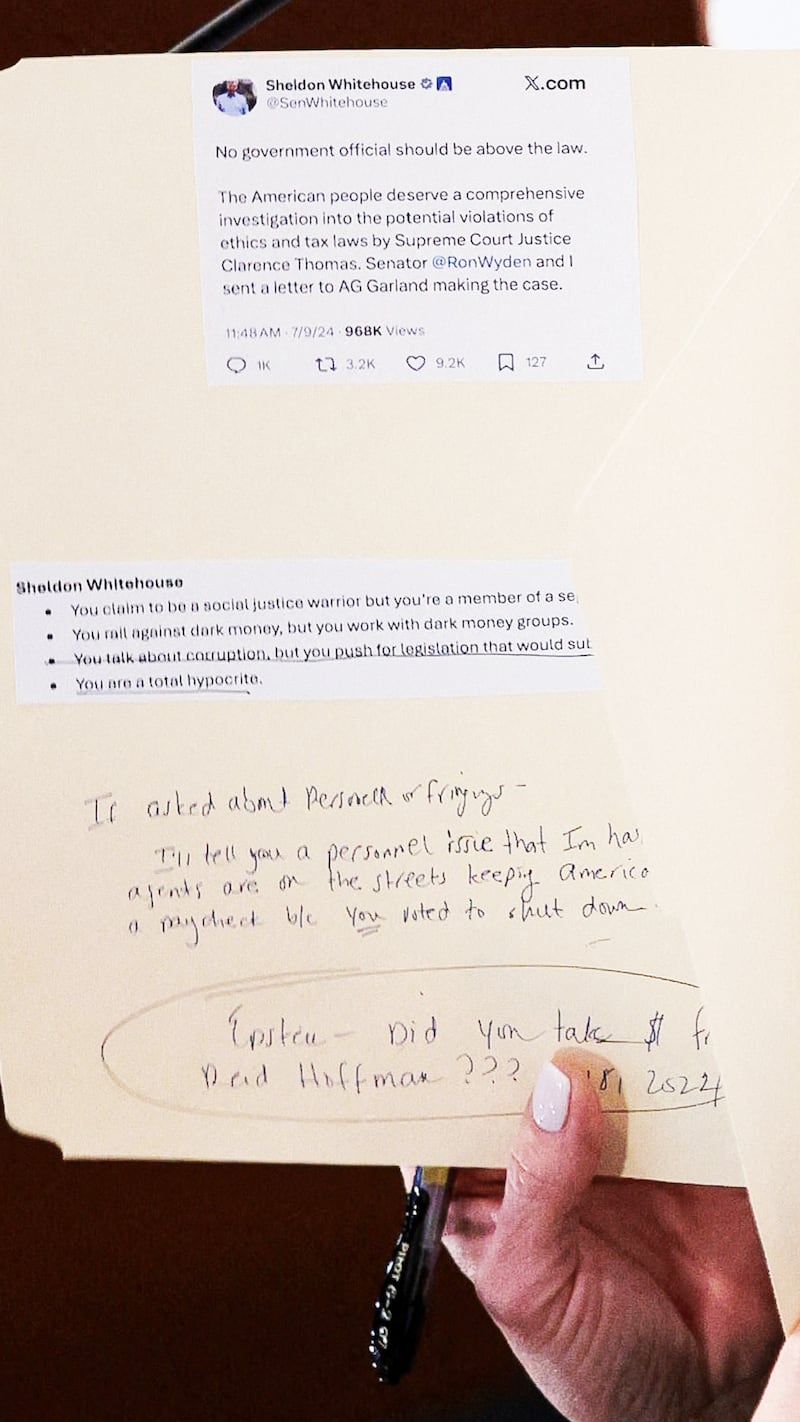 Sheldon Whitehouse
X.com
@SenWhitehouse
No government official should be above the law.
The American people deserve a comprehensive
investigation into the potential violations of
ethics and tax laws by Supreme Court Justice
Clarence Thomas. Senator @RonWyden and I
sent a letter to AG Garland making the case.
11:48 AM · 7/9/24 · 968K Views
1K 3.2K 9.2K 127
Sheldon Whitehouse
• You claim to be a social justice warrior but you're a member of a se
• You rail against dark money, but you work with dark money groups.
• You talk about corruption, but you push for legislation that would sub
• You are a total hypocrite.
If asked about Personell or -
I'll tell you a personnel issue that Im ha
agents are on the streets keepig America
a paycheck b/c You voted to shut down.
Epstein - Did you take $ f
Reid Hoffman ??? '18, 2022
PILOT G-2 07